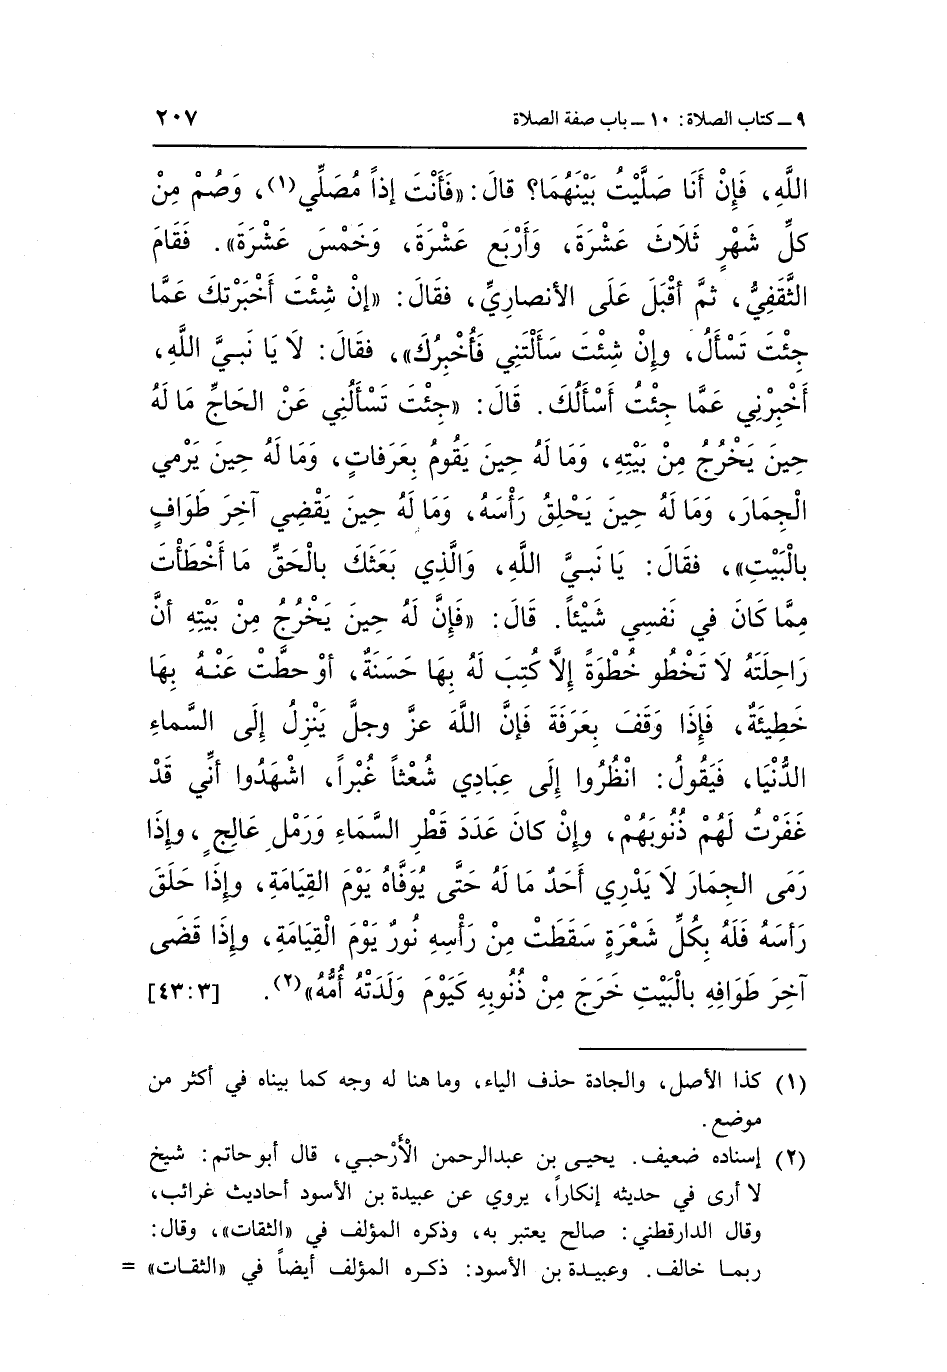 ٩ ـ كتاب الصلاة: ١٠ ـ باب صفة الصلاة ٢٠٧
اللَّهِ، فَإِنْ أَنَا صَلَّيْتُ بَيْنَهُمَا؟ قالَ: «فَأَنْتَ إذاً مُصَلِّي(١)، وَصُمْ مِنْ
كلِّ شَهْرٍ ثَلَاثَ عَشْرَةَ، وَأَرْبَع عَشْرَةَ، وَخَمْسَ عَشْرَةَ». فَقَامَ
الثَّقَفِيُّ، ثمَّ أقْبَلَ عَلَى الأنصاريِّ، فقالَ: «إنْ شِئْتَ أَخْبَرْتكَ عَمَّا
جِئْتَ تَسْأَلُ، وإنْ شِئْتَ سَأَلْتَنِي فَأُخْبِرُكَ»، فقالَ: لَا يَا نَبيَّ اللَّهِ،
أَخْبِرْنِي عَمَّا جِئْتُ أَسْأَلُكَ. قَالَ: «جِئْتَ تَسْأَلُنِي عَنْ الحَاجِّ مَا لَهُ
حِينَ يَخْرُجُ مِنْ بَيْتِهِ، وَمَا لَهُ حِينَ يَقُومُ بِعَرَفاتٍ، وَمَا لَهُ حِينَ يَرْمي
الْجِمَارَ، وَمَا لَهُ حِينَ يَحْلِقُ رَأْسَهُ، وَمَا لَهُ حِينَ يَقْضِي آخِرَ طَوَافٍ
بالْبَيْتِ»، فقَالَ: يَا نَبيَّ اللَّهِ، وَالَّذِي بَعَثَكَ بالْحَقِّ مَا أَخْطَأْتَ
مِمَّا كَانَ في نَفسِي شَيْئاً. قَالَ: «فَإِنَّ لَهُ حِينَ يَخْرُجُ مِنْ بَيْتِهِ أنَّ
رَاحِلَتَهُ لَا تَخْطُو خُطْوَةً إلَّا كُتِبَ لَهُ بِهَا حَسَنَةٌ، أوْ حطَّتْ عَنْهُ بِهَا
خَطِيئَةٌ، فَإِذَا وَقَفَ بِعَرَفَةَ فَإِنَّ اللَّهَ عزَّ وجلَّ يَنْزِلُ إلَى السَّماءِ
الدُّنْيَا، فَيَقُولُ: انْظُرُوا إلَى عِبَادِي شُعْثاً غُبْراً، اشْهَدُوا أنِّي قَدْ
غَفَرْتُ لَهُمْ ذُنُوبَهُمْ، وإنْ كانَ عَدَدَ قَطْرِ السَّمَاءِ وَرَمْلِ عَالِجٍ، وإذَا
رَمَى الجِمَارَ لَا يَدْرِي أَحَدٌ مَا لَهُ حَتَّى يُوَفَّاهُ يَوْمَ القِيَامَةِ، وإِذَا حَلَقَ
رَأسَهُ فَلَهُ بِكُلِّ شَعْرَةٍ سَقَطَتْ مِنْ رَأْسِهِ نُورٌ يَوْمَ الْقِيَامَةِ، وإذَا قَضَى
آخِرَ طَوَافِهِ بالْبَيْتِ خَرَجَ مِنْ ذُنُوبِهِ كَيَوْمَ وَلَدَتْهُ أُمُّهُ»(٢). [٤٣:٣]
(١) كذا الأصل، والجادة حذف الياء، وما هنا له وجه كما بيناه في أكثر من
موضع.
(٢) إسناده ضعيف. يحيى بن عبدالرحمن الأَرْحبي، قال أبو حاتم: شيخ
لا أرى في حديثه إنكاراً، يروي عن عبيدة بن الأسود أحاديث غرائب،
وقال الدارقطني: صالح يعتبر به، وذكره المؤلف في «الثقات»، وقال:
ربما خالف. وعبيدة بن الأسود: ذكره المؤلف أيضاً في «الثقات» =